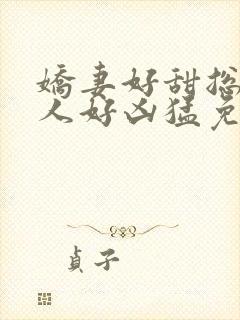 嬌妻好甜総
人好凶猛免
貞子